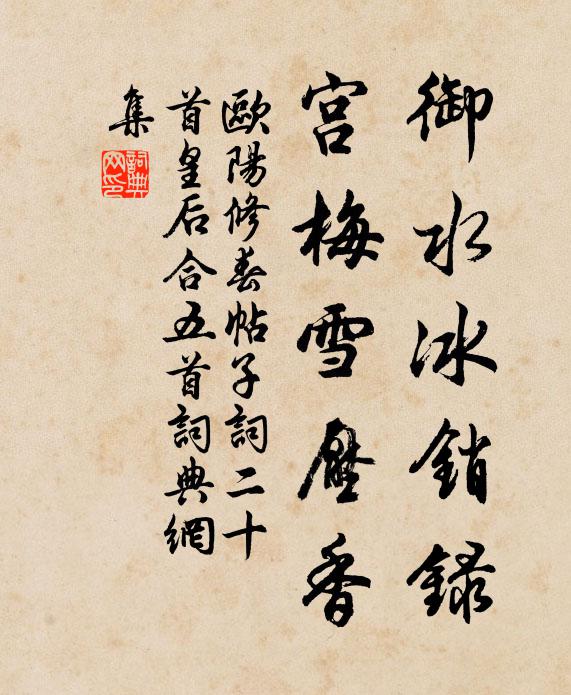 御水冰銷錄
宮梅雪壓香
歐陽修春帖子詞二十
首皇后合五首詞典網
集
詞典網印